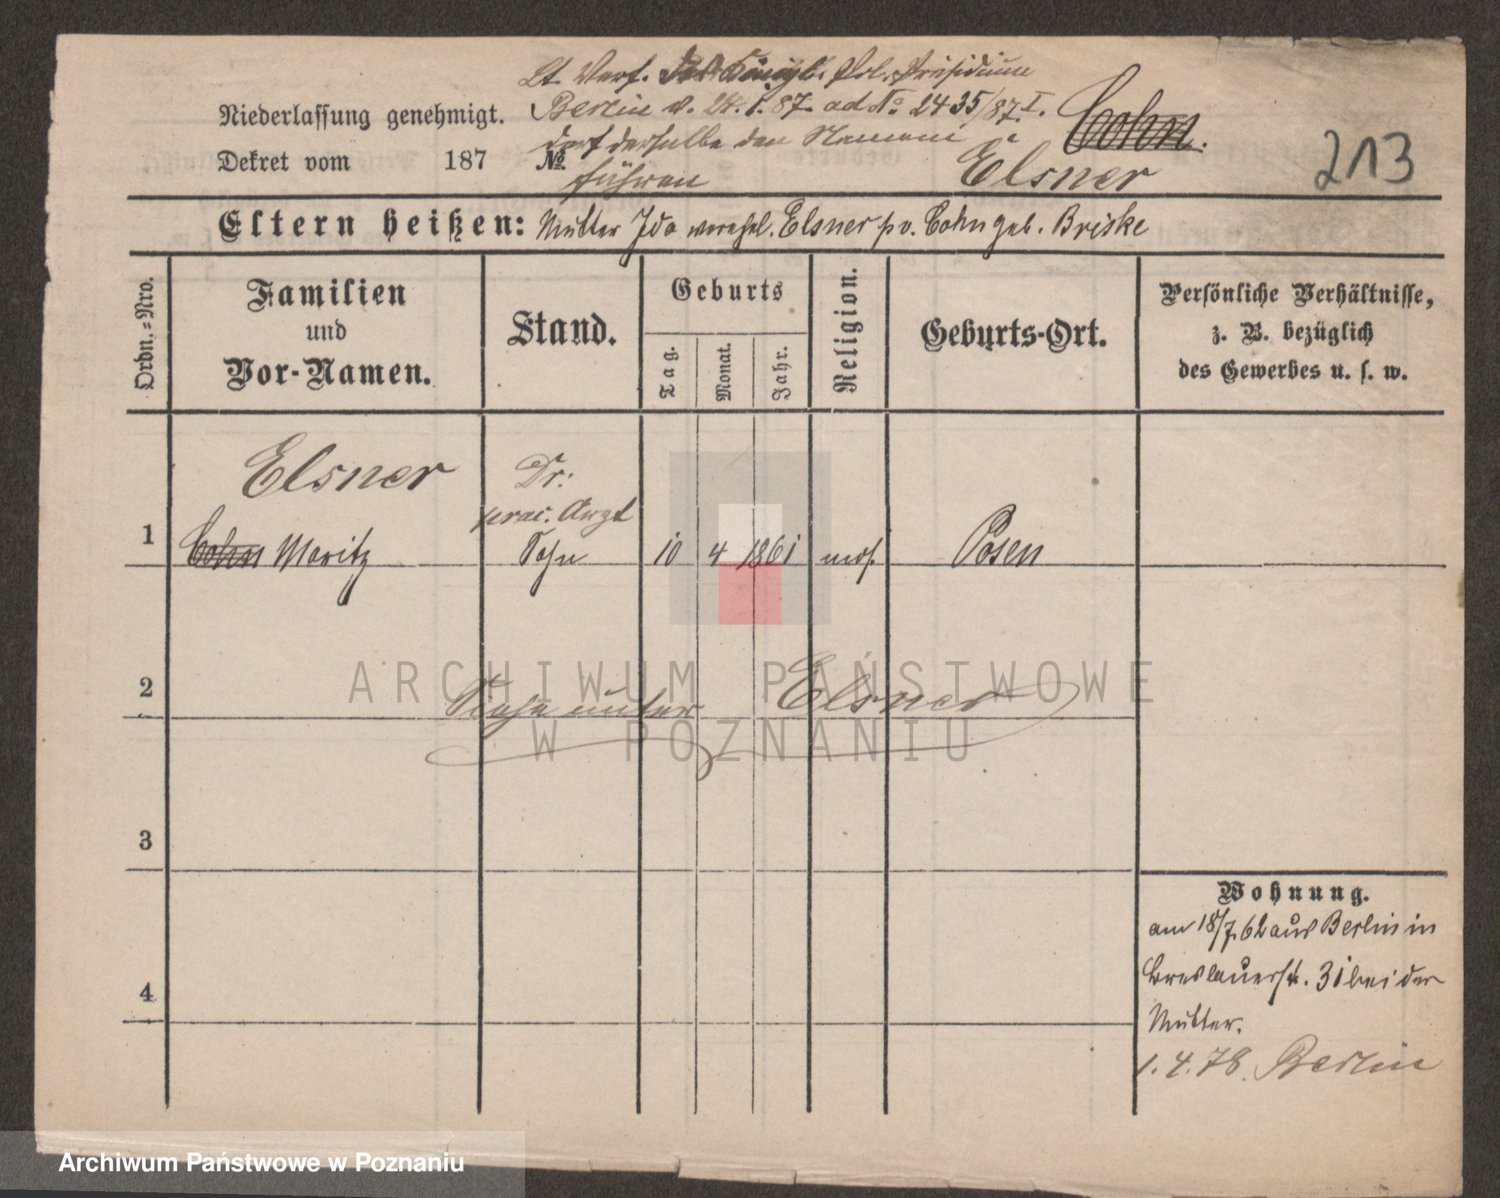 Lt. Verf. Königl. Pol. Präsidium
Niederlassung genehmigt.
Berlin v. 24.1.87. ad No 2435/87.I.
Cohn.
darf derselbe den Namen
Dekret vom 187 No
führen
Elsner
213
Eltern heißen: Mutter Ida verehel. Elsner pv. Cohn geb. Briske
Ordn.-Nro.
Familien
und
Vor-Namen.
Stand.
Geburts
Tag.
Monat.
Jahr.
Religion.
Geburts-Ort.
Persönliche Verhältnisse,
z. B. bezüglich
des Gewerbes u. s. w.
Elsner
Dr:
prac. Arzt
1 Cohn Moritz Sohn 10 4 1861 mos. Posen
2 Siehe unter Elsner
3
4
Wohnung.
am 18/7 62 aus Berlin in
Breslauerstr. 31 bei der
Mutter.
1.4.78. Berlin
ARCHIWUM PAŃSTWOWE
W POZNANIU
Archiwum Państwowe w Poznaniu